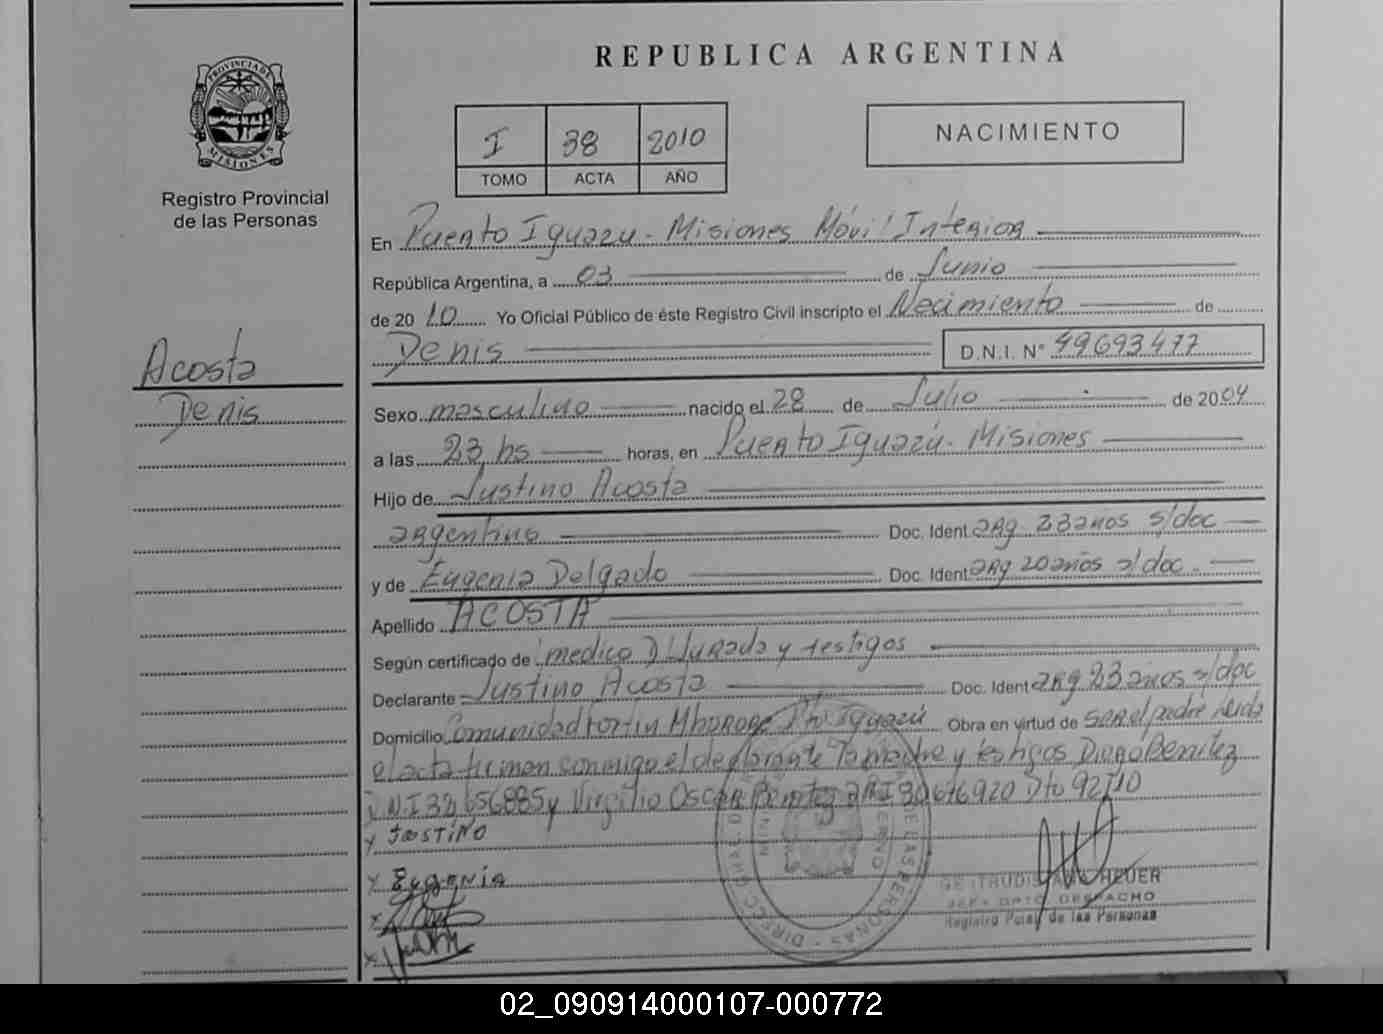 REPUBLICA ARGENTINA
PROVINCIA DE
MISIONES
Registro Provincial
de las Personas
I 38 2010
TOMO ACTA AÑO
NACIMIENTO
En Puerto Iguazu - Misiones Móvil Interior
República Argentina, a 03 de Junio
de 20 10 Yo Oficial Público de éste Registro Civil inscripto el Nacimiento de
Denis D.N.I. N° 49693477
Acosta
Denis
Sexo masculino nacido el 28 de Julio de 2004
a las 23 hs horas, en Puerto Iguazú - Misiones
Hijo de Justino Acosta
argentino Doc. Ident. arg 23 años s/doc
y de Eugenia Delgado Doc. Ident. arg 20 años s/doc.
Apellido ACOSTA
Según certificado de medico D Jurada y testigos
Declarante Justino Acosta Doc. Ident arg 23 años s/doc
Domicilio Comunidad Fortin Mbororé Pto Iguazú Obra en virtud de ser el padre leida
el acta firman conmigo el declarante la madre y testigos Benitez
y Virgilio Oscar Benitez 30676920 Dto 92/10
x JoSTiNO
x EugeNia
x
x
DE LAS PERSONAS - DIRECC
HEUER
DPTO. DESPACHO
Registro Pcial de las Personas
02_090914000107-000772